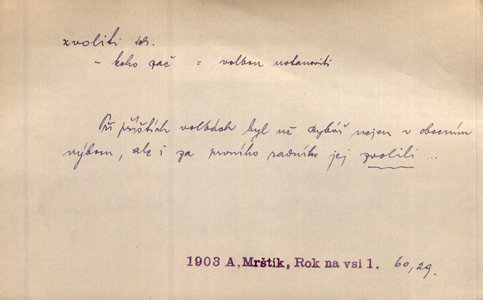 zvoliti dok.
- koho zač = volbou ustanoviti
Při příštích volbách byl už Rybáš nejen v obecním
výboru, ale i za prvního radního jej zvolili ...
1903 A. Mrštík, Rok na vsi 1. 60,29.